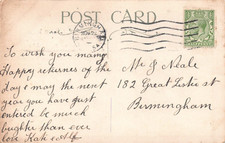 POST CARD
To wish you many
Happy returns of the
day & may the next
year you have just
entered be much
brighter than ever
love Kate & Alf
Mr J Neale
182 Great Lister St
Birmingham